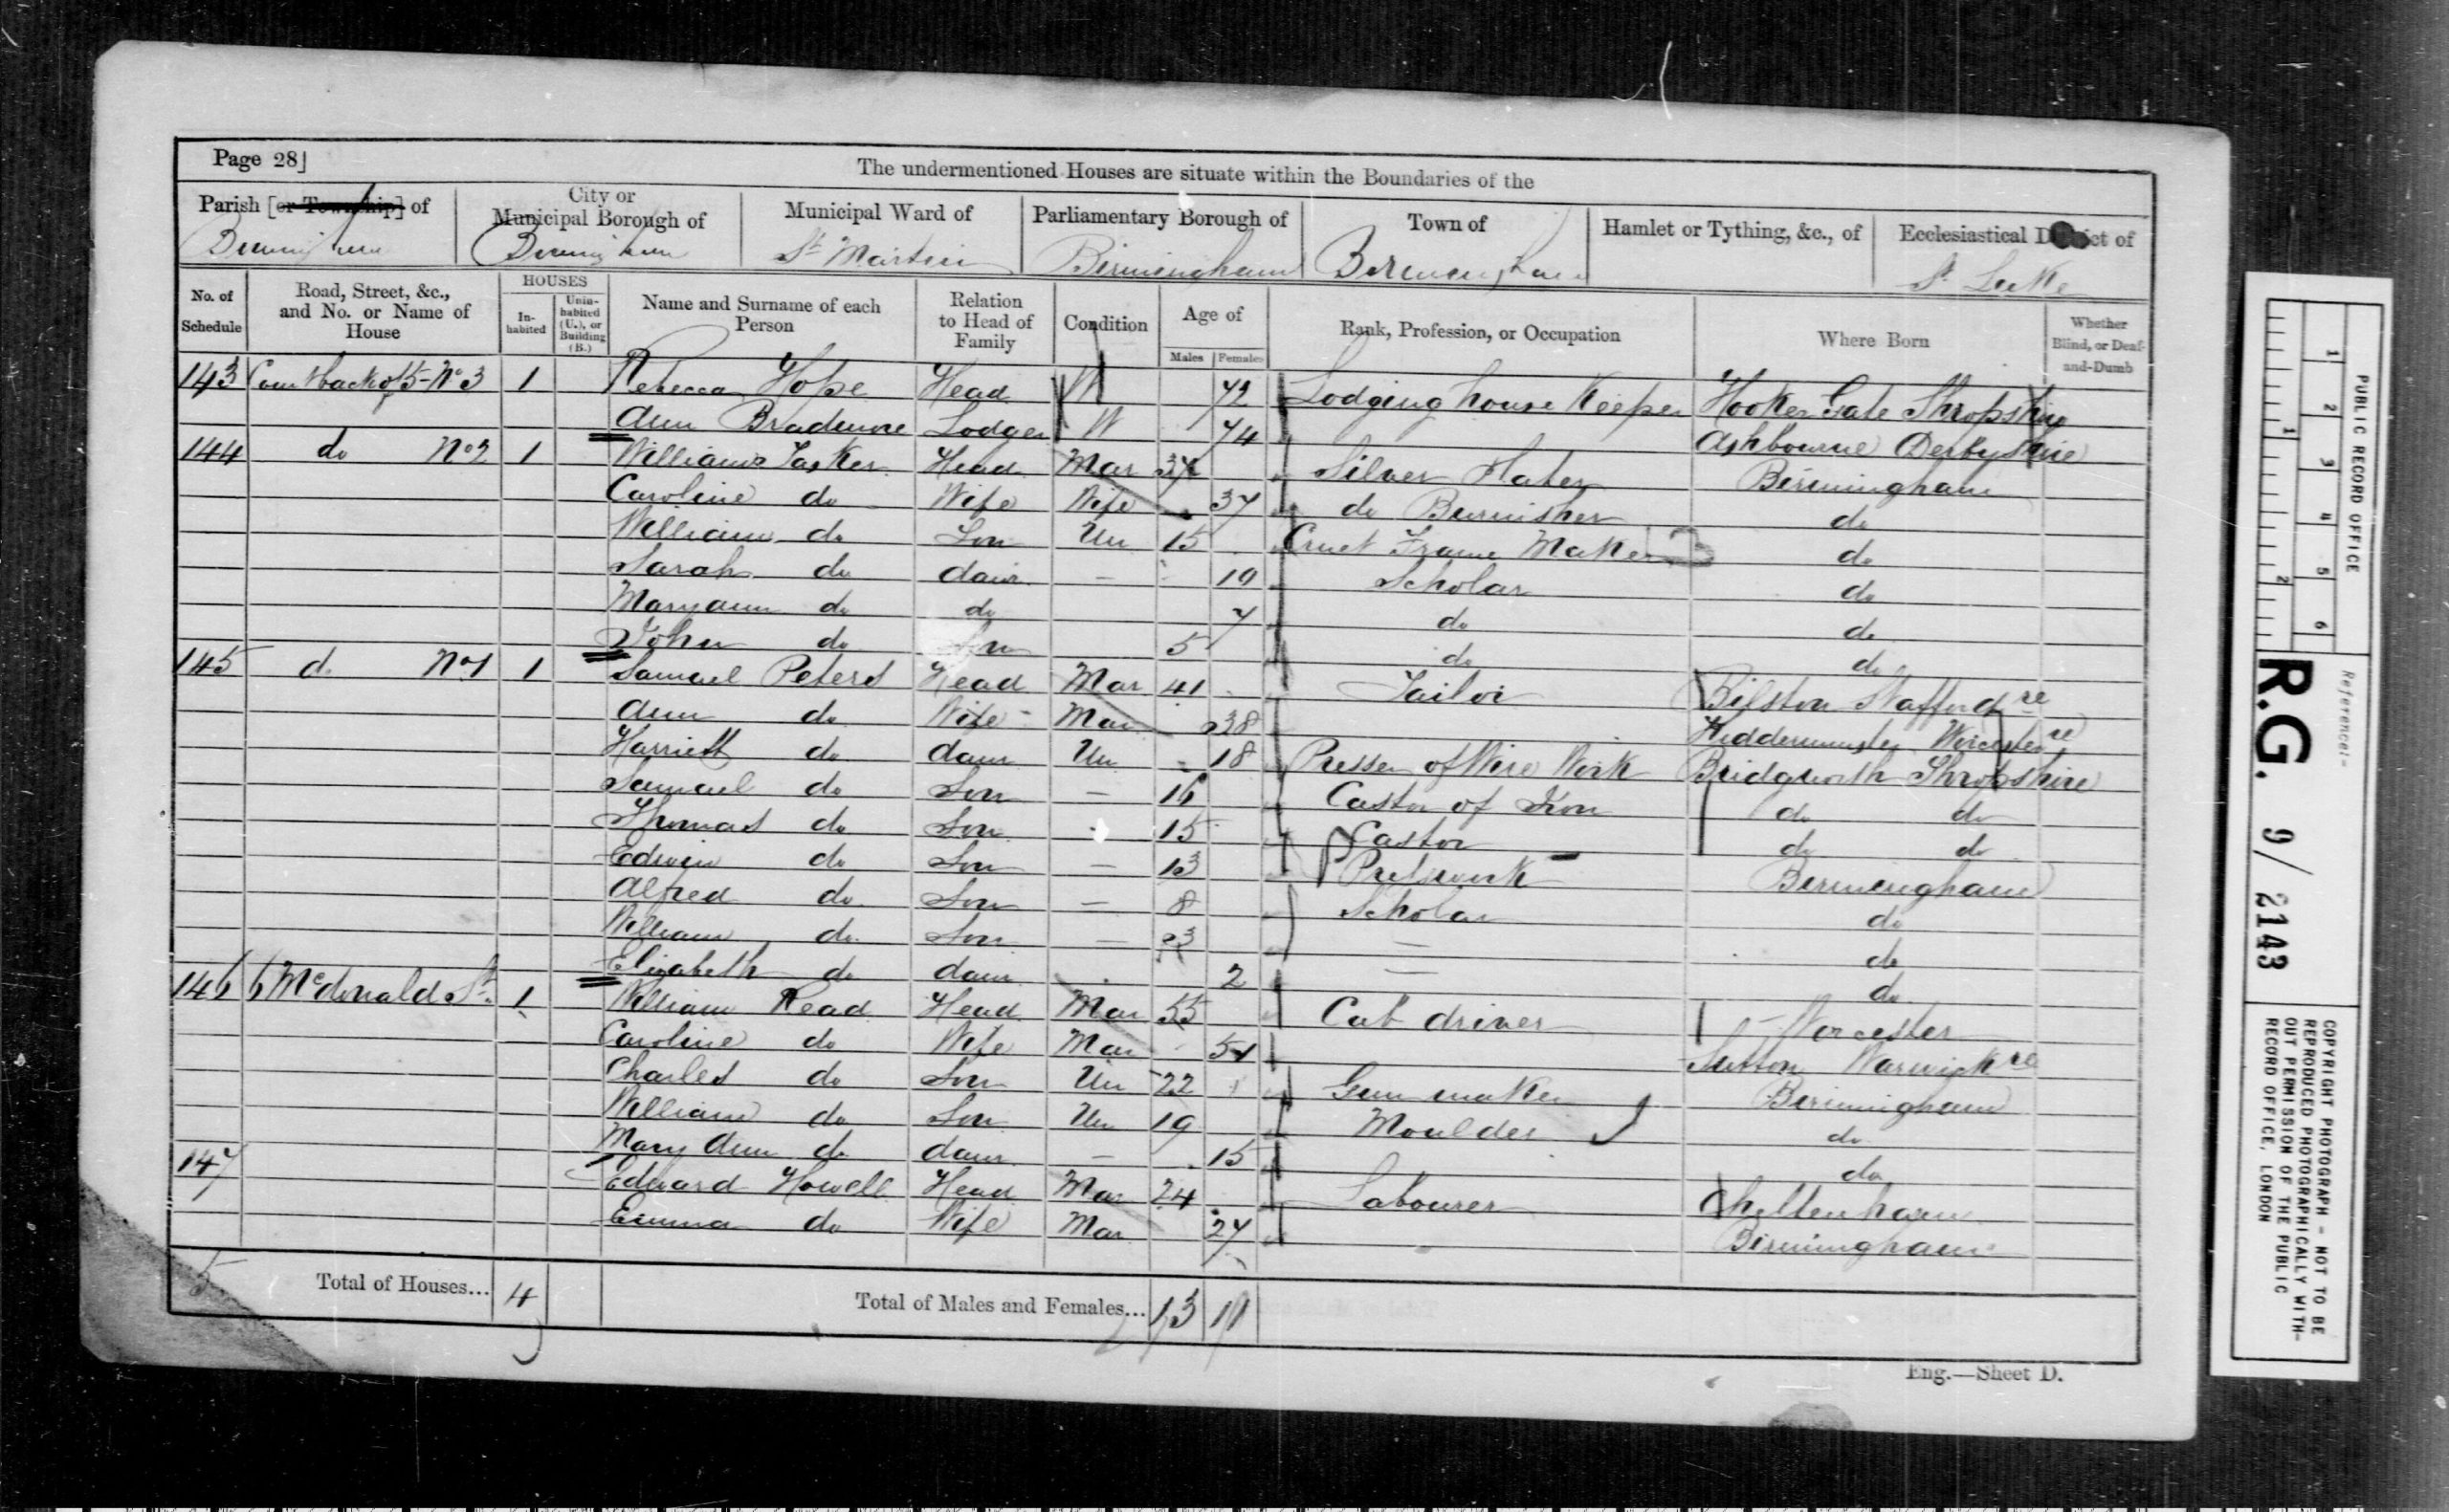 Page 28]
The undermentioned Houses are situate within the Boundaries of the
Parish [or Township] of
City or Municipal Borough of
Municipal Ward of
Parliamentary Borough of
Town of
Hamlet or Tything, &c., of
Ecclesiastical District of
Birmingham
Birmingham
St Martin
Birmingham
Birmingham
St Luke
No. of Schedule
Road, Street, &c., and No. or Name of House
HOUSES
In-habited
Unin-habited (U.), or Building (B.)
Name and Surname of each Person
Relation to Head of Family
Condition
Age of
Males
Females
Rank, Profession, or Occupation
Where Born
Whether Blind, or Deaf-and-Dumb
143 Court back of 15 - No 3 1 Rebecca Hope Head W 72 Lodging house Keeper Gate Shropshire
Ann Bradmore Lodger W 74 Ashbourne Derbyshire
144 do No 2 1 William Tasker Head Mar Silver Plater Birmingham
Caroline do Wife Wife 37 do Burnisher do
William do Son Un 15 Cruet Frame Maker do
Sarah do daur — 10 Scholar do
Maryann do do 7 do do
John do Son 5 do do
145 do No 1 1 Samuel Peters Head Mar 41 Tailor Bilston Staffordre
Ann do Wife Mar 38 Kidderminster Worcesterre
Harriett do daur Un 18 Presser of Wire Work Bridgnorth Shropshire
Samuel do Son — 16 Castor of Iron do do
Thomas do Son 15 Castor do do
Edwin do Son — 13 Birmingham
Alfred do Son — 8 Scholar do
William do Son — 3 — do
Elizabeth do daur 2 — do
146 6 McDonald St. 1 William Read Head Mar 55 Cab driver Worcester
Caroline do Wife Mar 51 Sutton Warwickre
Charles do Son Un 22 Gun maker Birmingham
William do Son Un 19 Moulder do
Mary Ann do daur — 15 do
147 Edward Howell Head Mar 24 Labourer Cheltenham
Emma do Wife Mar 27 Birmingham
5 Total of Houses... 4
Total of Males and Females... 13 11
Eng.—Sheet D.
PUBLIC RECORD OFFICE
1 2 3 4 5 6
1 2
Reference:-
R.G. 9/2143
COPYRIGHT PHOTOGRAPH - NOT TO BE
REPRODUCED PHOTOGRAPHICALLY WITH-
OUT PERMISSION OF THE PUBLIC
RECORD OFFICE, LONDON